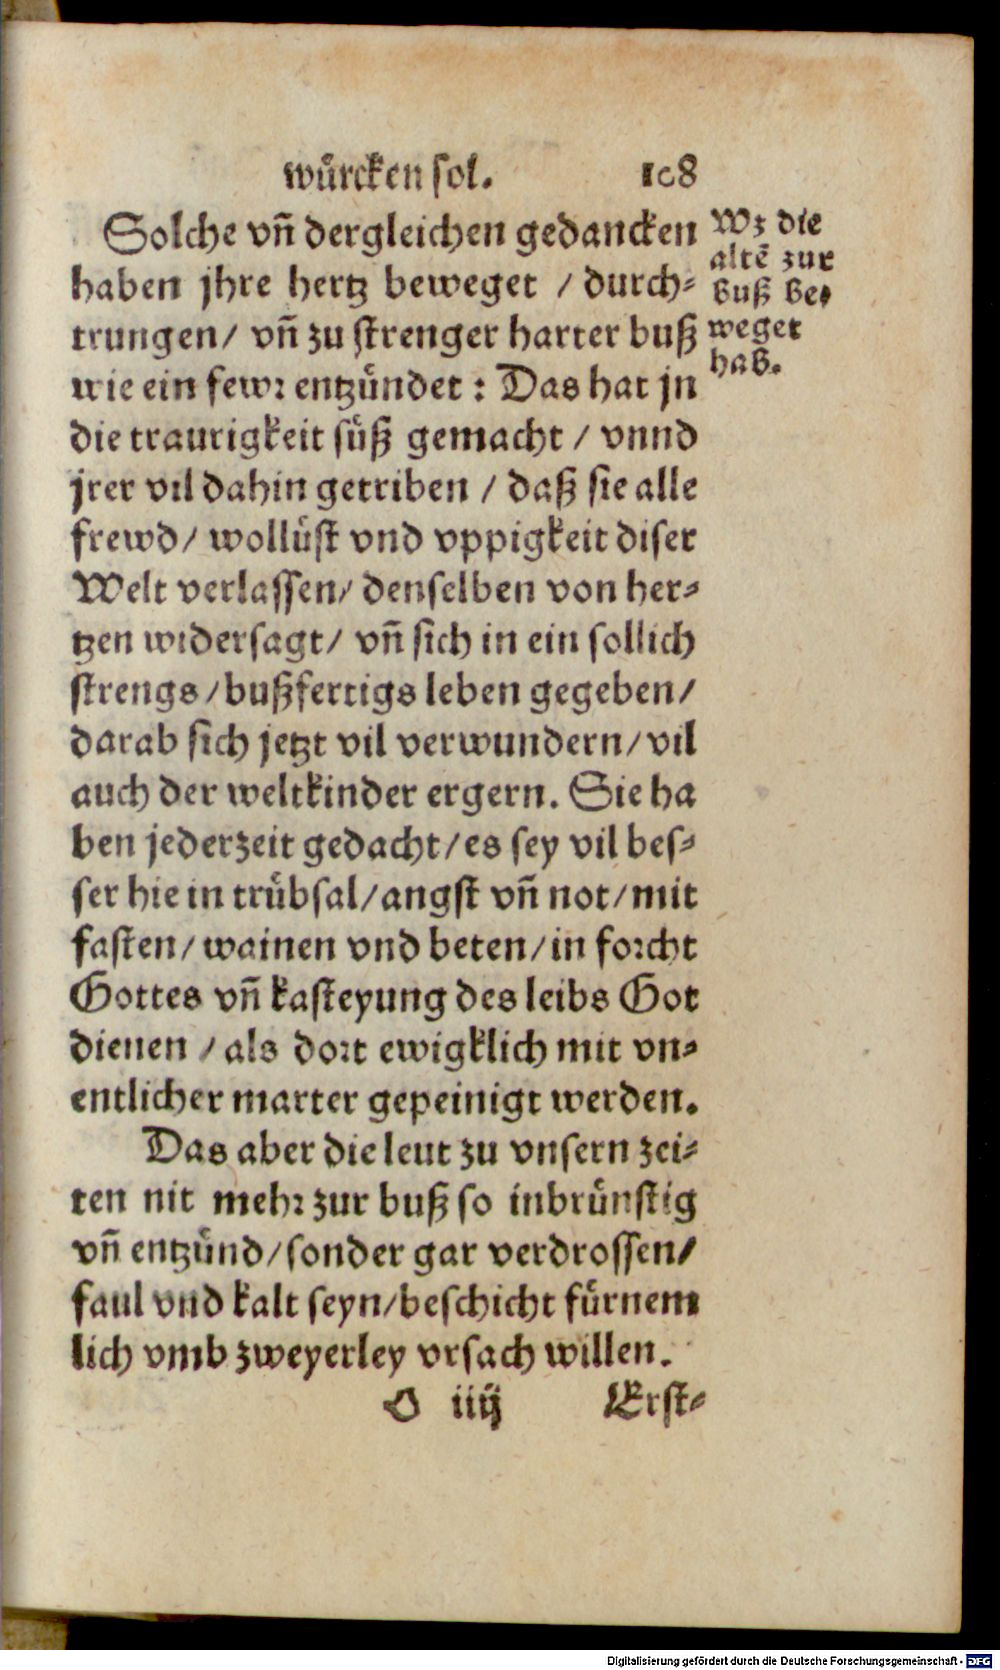 wuͤrcken sol. 108
Solche vñ dergleichen gedancken
haben jhre hertz beweget / durch⸗
trungen / vñ zu strenger harter buß
wie ein fewꝛ entzuͤndet : Das hat jn
die traurigkeit suͤß gemacht / vnnd
jrer vil dahin getriben / daß sie alle
frewd / wolluͤst vnd vppigkeit diser
Welt verlassen / denselben von her⸗
tzen widersagt / vñ sich in ein sollich
strengs / bußfertigs leben gegeben /
darab sich jetzt vil verwundern / vil
auch der weltkinder ergern. Sie ha
ben jederzeit gedacht / es sey vil bes⸗
ser hie in truͤbsal / angst vñ not / mit
fasten / wainen vnd beten / in foꝛcht
Gottes vñ kasteyung des leibs Got
dienen / als doꝛt ewigklich mit vn⸗
entlicher marter gepeinigt werden.
Das aber die leut zu vnsern zei⸗
ten nit mehꝛ zur buß so inbruͤnstig
vñ entzuͤnd / sonder gar verdrossen /
faul vnd kalt seyn / beschicht fuͤrnem
lich vmb zweyerley vrsach willen.
O iiij Erst⸗
Wz die
altẽ zur
buß be⸗
weget
hab.
Digitalisierung gefördert durch die Deutsche Forschungsgemeinschaft - DFG